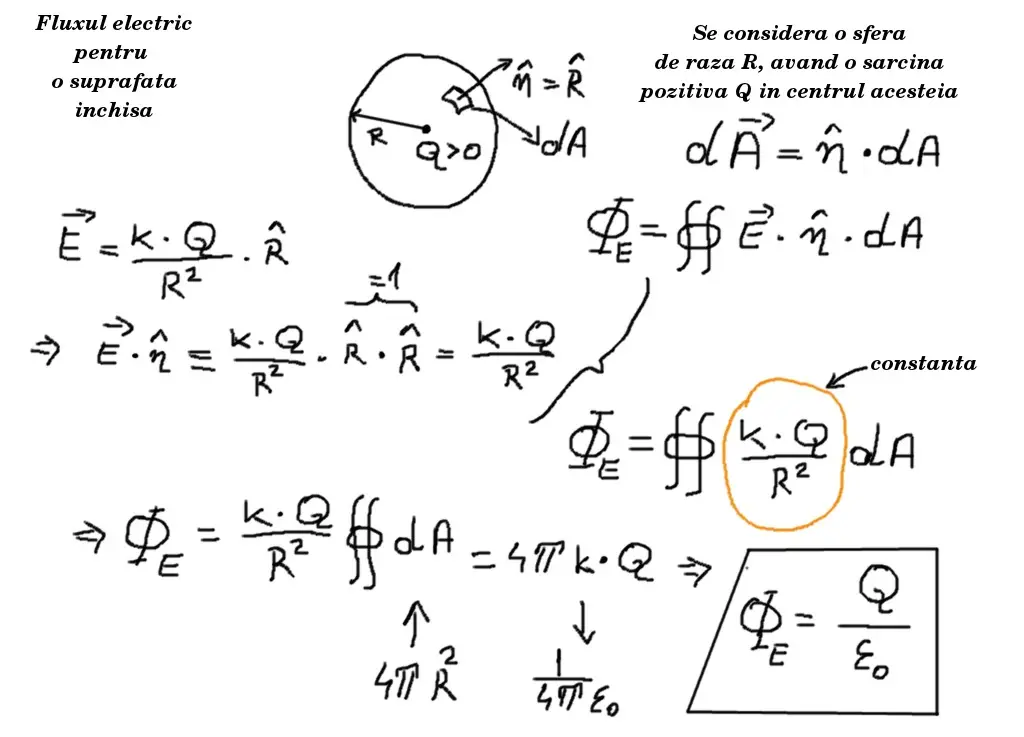 Fluxul electric
pentru
o suprafata
inchisa
Se considera o sfera
de raza R, avand o sarcina
pozitiva Q in centrul acesteia
n̂ = R̂
R
Q>0
dA
dA⃗ = n̂ · dA
Φ_E = ∯ E⃗ · n̂ · dA
E⃗ = k·Q/R² · R̂
=1
⇒ E⃗ · n̂ = k·Q/R² · R̂ · R̂ = k·Q/R²
constanta
Φ_E = ∯ k·Q/R² dA
⇒ Φ_E = k·Q/R² ∯ dA = 4πk·Q ⇒
4πR²
1/4πε₀
Φ_E = Q/ε₀